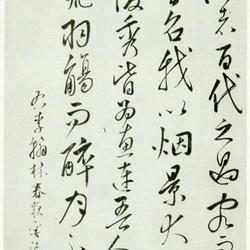 者百代之過客
召我以烟景大
俊秀皆為惠連吾人
飛羽觴而醉月不
右李翰林春夜宴